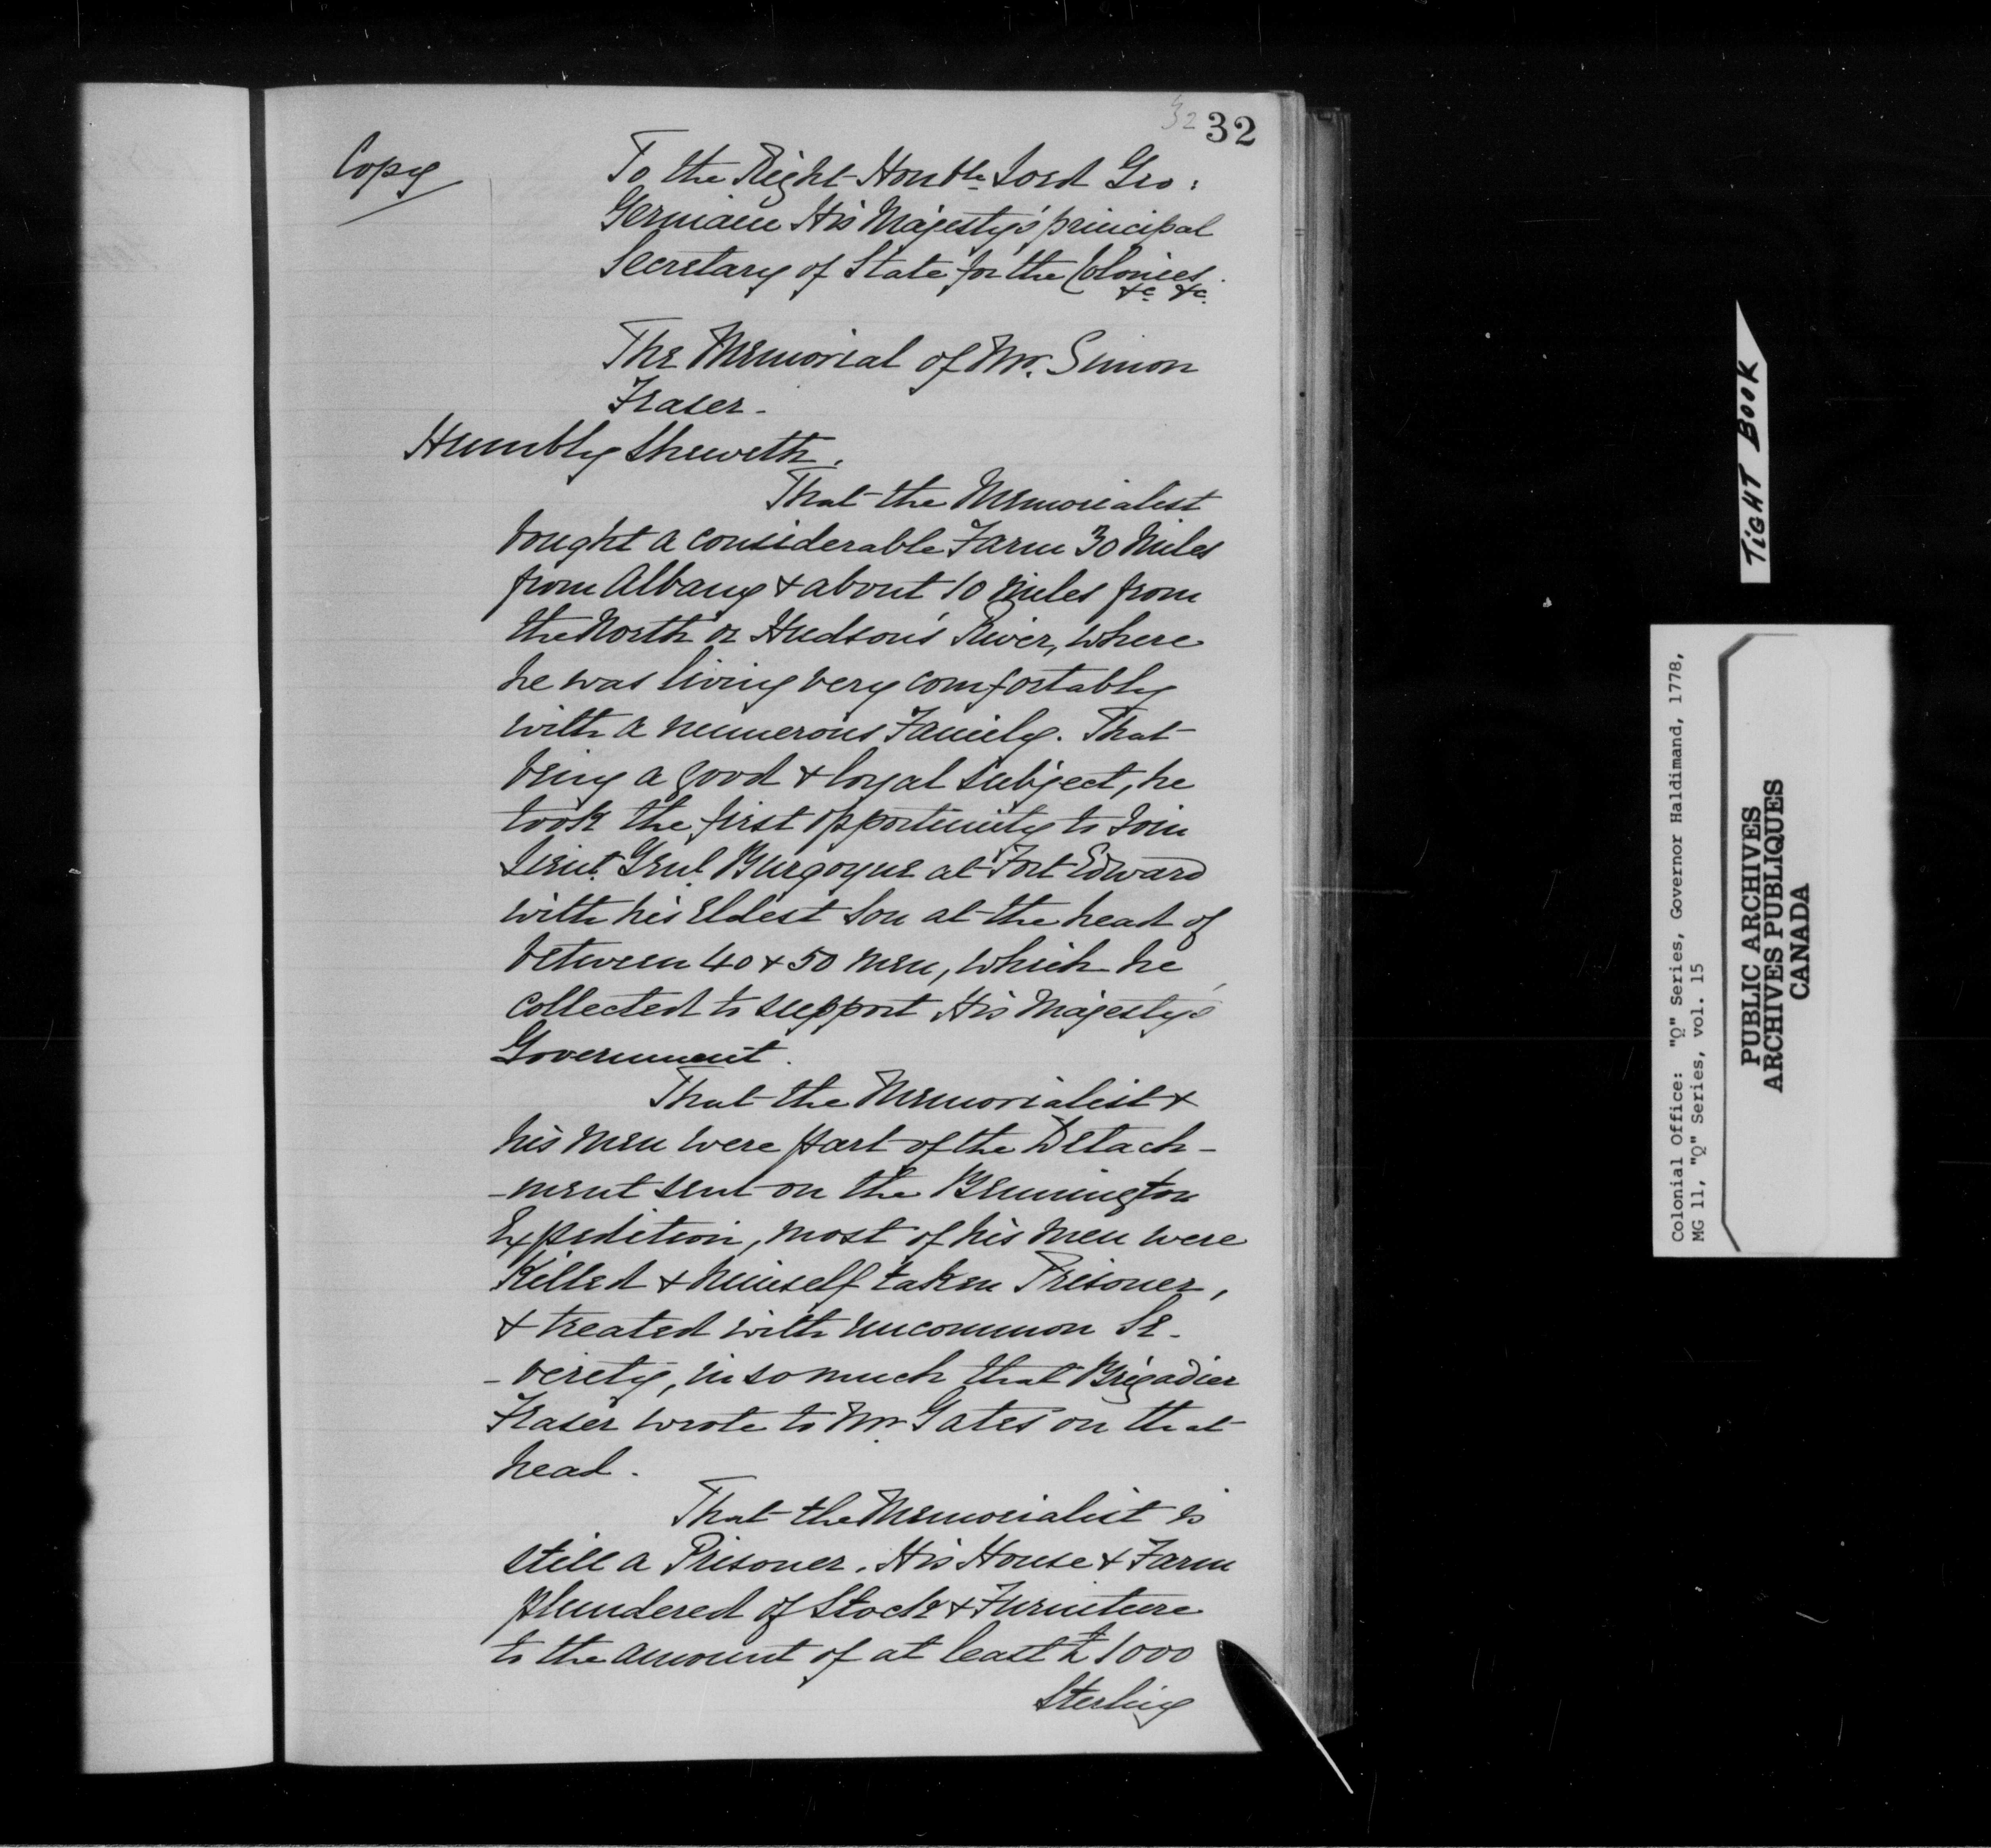 32 32
Copy
To the Right Honble Lord Geo:
Germaine His Majesty's principal
Secretary of State for the Colonies.
&c &c.
The Memorial of Mr. Simon
Fraser.
Humbly Sheweth.
That the Memorialist
bought a considerable Farm 30 Miles
from Albany & about 10 Miles from
the North or Hudson's River, where
he was living very comfortably
with a numerous Family. That
being a good & loyal subject, he
took the first opportunity to Join
Lieut. Genl Burgoyne at Fort Edward
with his Eldest Son at the head of
between 40 & 50 men, which he
collected to support His Majesty's
Government.
That the Memorialist &
his men were part of the Detach-
-ment sent on the Bennington
Expedition, most of his men were
Killed & himself taken Prisoner,
& treated with uncommon Se-
-verity, in so much that Brigadier
Fraser wrote to Mr. Gates on that
head.
That the Memorialist is
still a Prisoner. His House & Farm
plundered of Stock & Furniture
to the amount of at least £1000
Sterling
TIGHT BOOK
Colonial Office: "Q" Series, Governor Haldimand, 1778,
MG 11, "Q" Series, vol. 15
PUBLIC ARCHIVES
ARCHIVES PUBLIQUES
CANADA